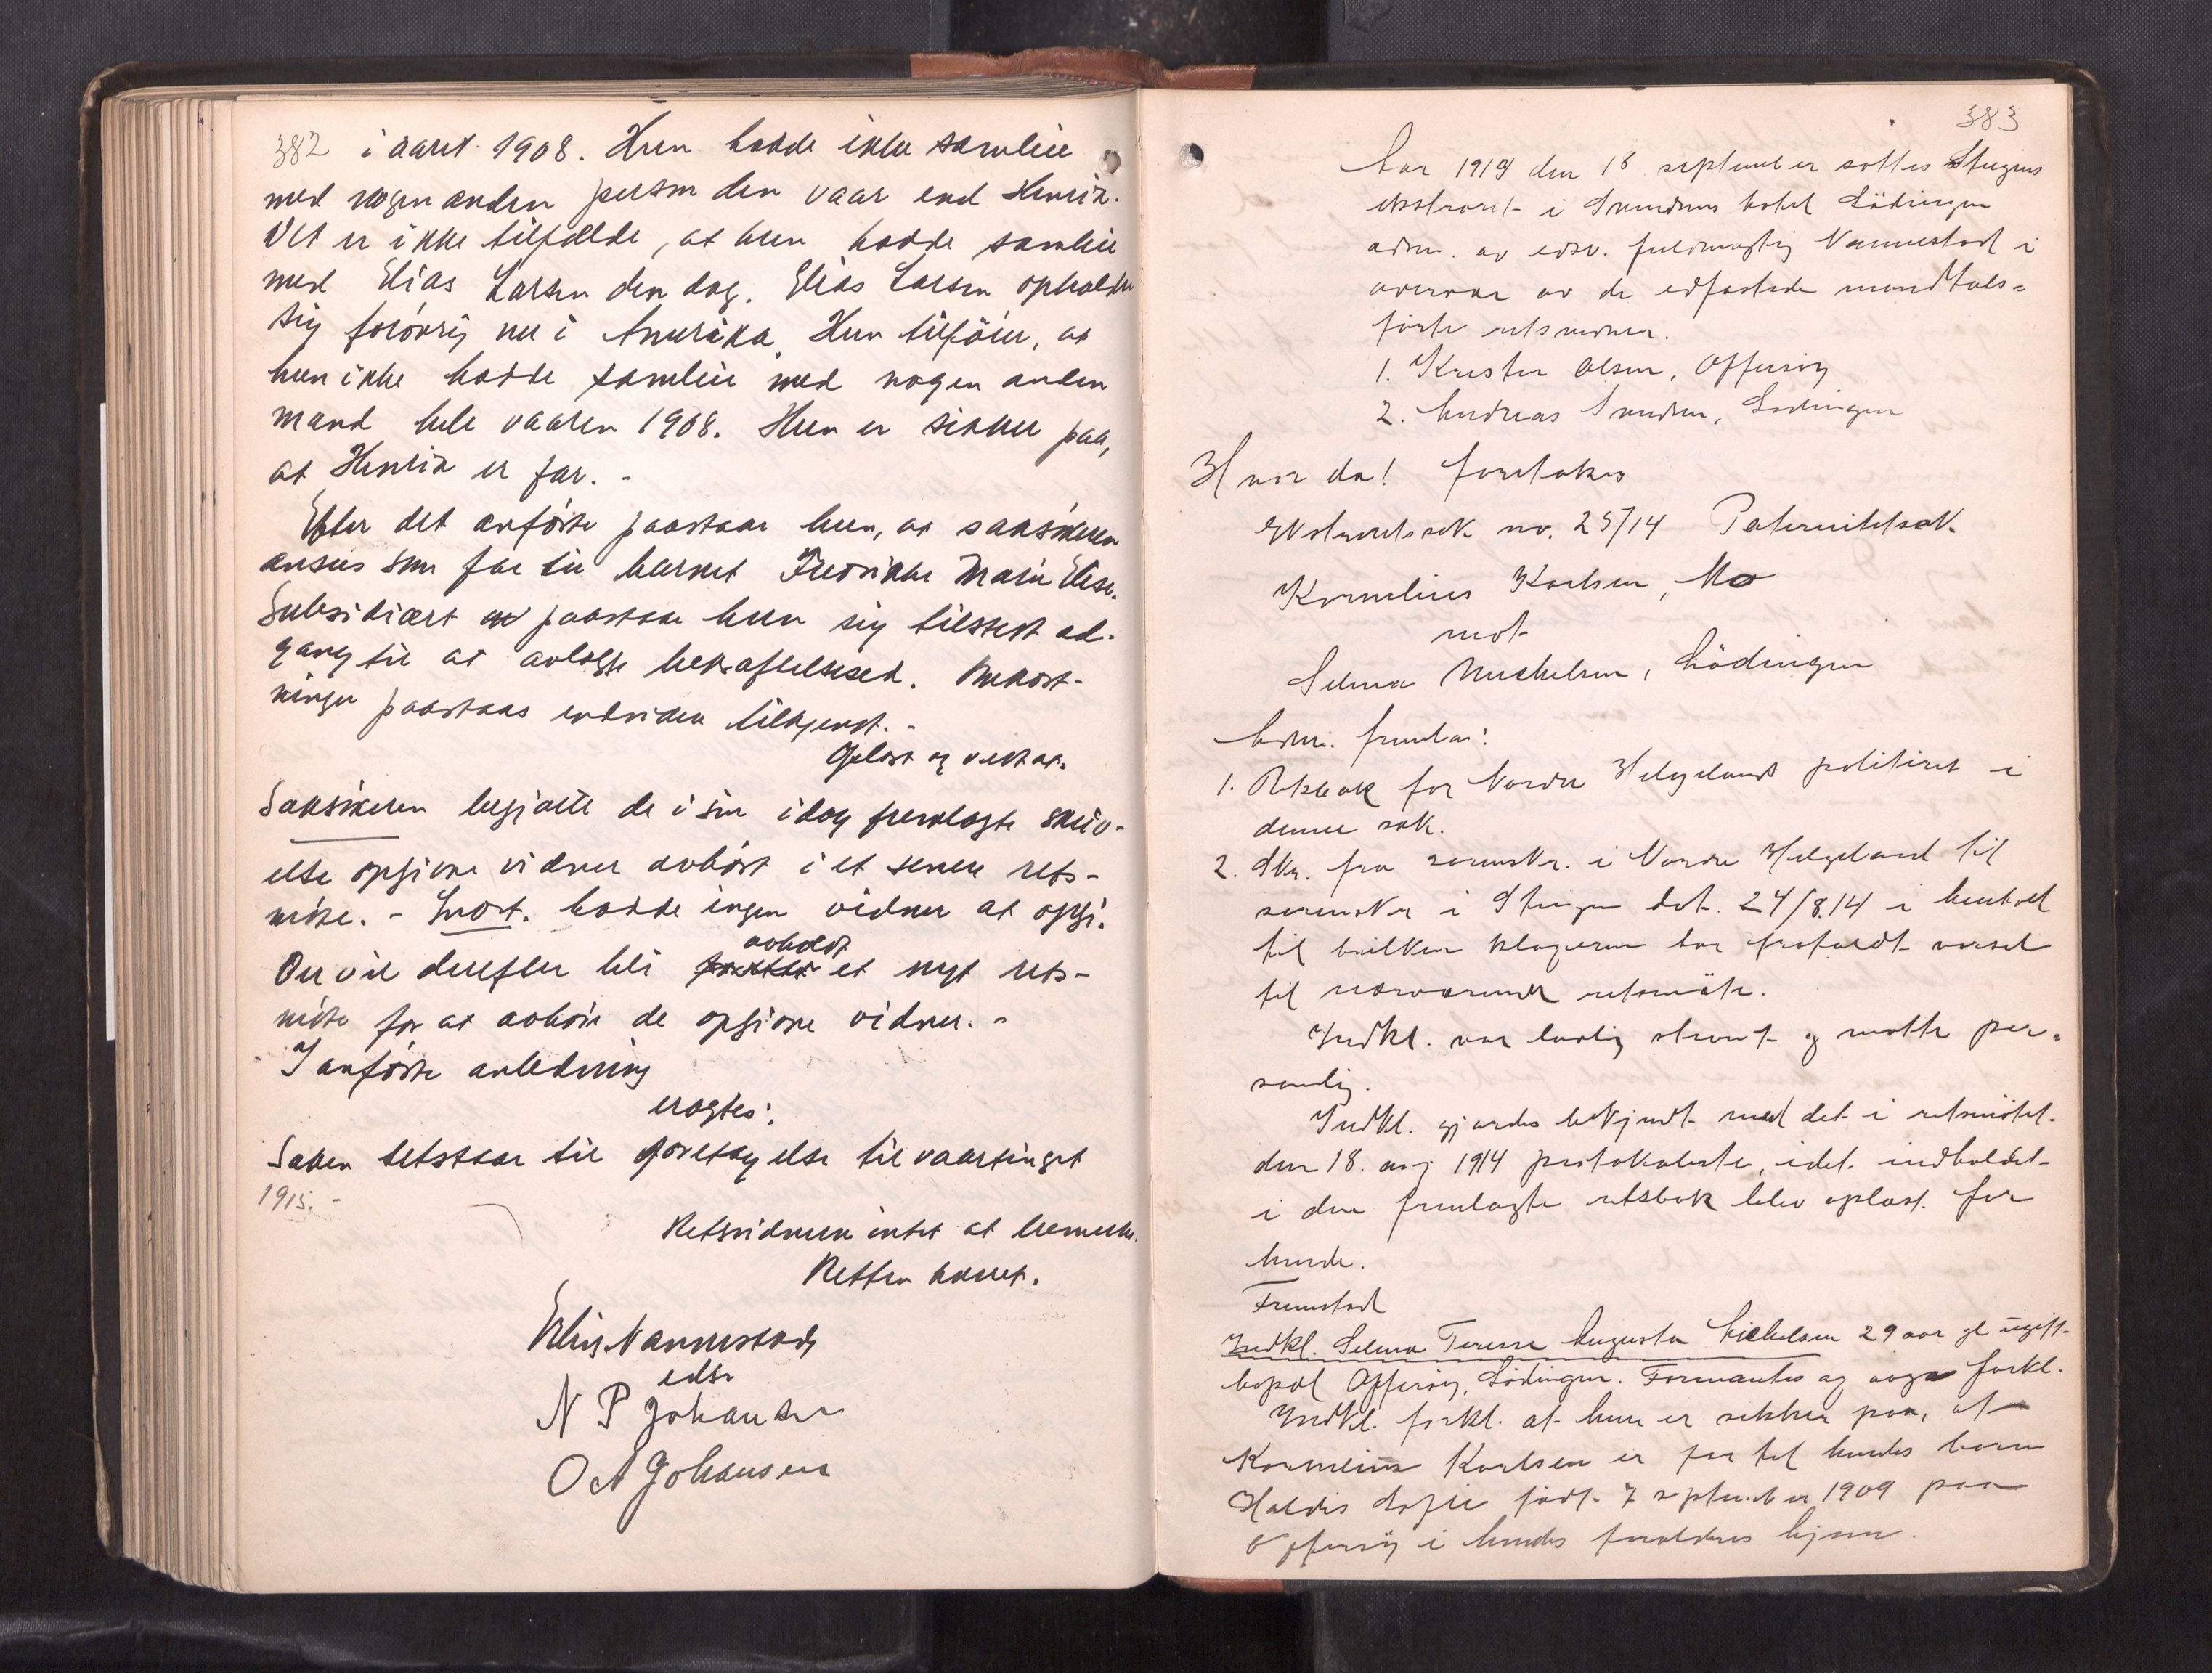 382 i aaret 1908. Hun hadde ikke samleie
med nogen anden person den vaar end Henrik.
Det er ikke tilfælde, at hun hadde samleie
med Elias Larsen den dag. Elias Larsen opholder
sig forøvrig nu i Amerika. Hun tilføier, at
hun ikke hadde samleie med nogen anden
mand hele vaaren 1908. Hun er sikker paa,
at Henrik er far. -
Efter det anførte paastaar hun, at saksøkeren
ansees som far til barnet Fredrikke Marie Elise.
Subsidiært paastaar hun sig tilstedt ad-
gang til at avlægge bekræftelsesed. Omkost-
ninger paastaaes endvidere tilkjendt. -
Oplæst og vedtat.
Saksøkeren begjærte de i sin idag fremlagte skriv-
else opgivne vidner avhørt i et senere rets-
møte. - Indst. hadde ingen vidner at opgi.
Der vil derefter bli avholdt et nyt rets-
møte for at avhøre de opgivne vidner. -
I anførte anledning
eragtes:
Saken utstaar til foretagelse til vaartinget
1915. -
Retsvidnerne intet at bemerke.
Retten hævet.
Nannestad
edsv
N P Johansen
O A Johansen
383
Aar 1914 den 18 september sattes Steigens
ekstraret i Svendsens hotel Lödingen
adm. av edsv. fuldmægtig Nannestad i
overvær av de edfæstede mandtals-
førte retsvidner.
1. Krister Olsen, Offersøy
2. Andreas Svendsen, Lødingen
Hvor da! foretokes
Ekstraretssak no. 25/14 Paternitetssak
Kornelius Karlsen, Mo
mot
Selma Mickelsen, Lödingen
Adm. fremla:
1. Retsbok for Nordre Helgeland politiret i
denne sak.
2. Skr. fra sorenskr. i Nordre Helgeland til
sorenskr i Steigen dat. 24/8.14 i henhold
til hvilken klageren har frafaldt varsel
til nærværende retsmöte.
Indkl. var lovlig stevnt og møtte per-
sonlig.
Indkl. gjordes bekjendt med det i retsmötet
den 18. aug 1914 protokolerte, idet indholdet
i den fremlagte retsbok blev oplæst for
hende.
Fremstod
Indkl. Selma Terese Augusta Mickelsen 29 aar gl ugift
bopæl Offersøy, Lødingen. Formantes og avga forkl.
Indkl. forkl. at hun er sikker paa, at
Kornelius Karlsen er far til hendes barn
Haldis Sofie født 7 september 1909 paa
Offersøy i hendes forældres hjem.